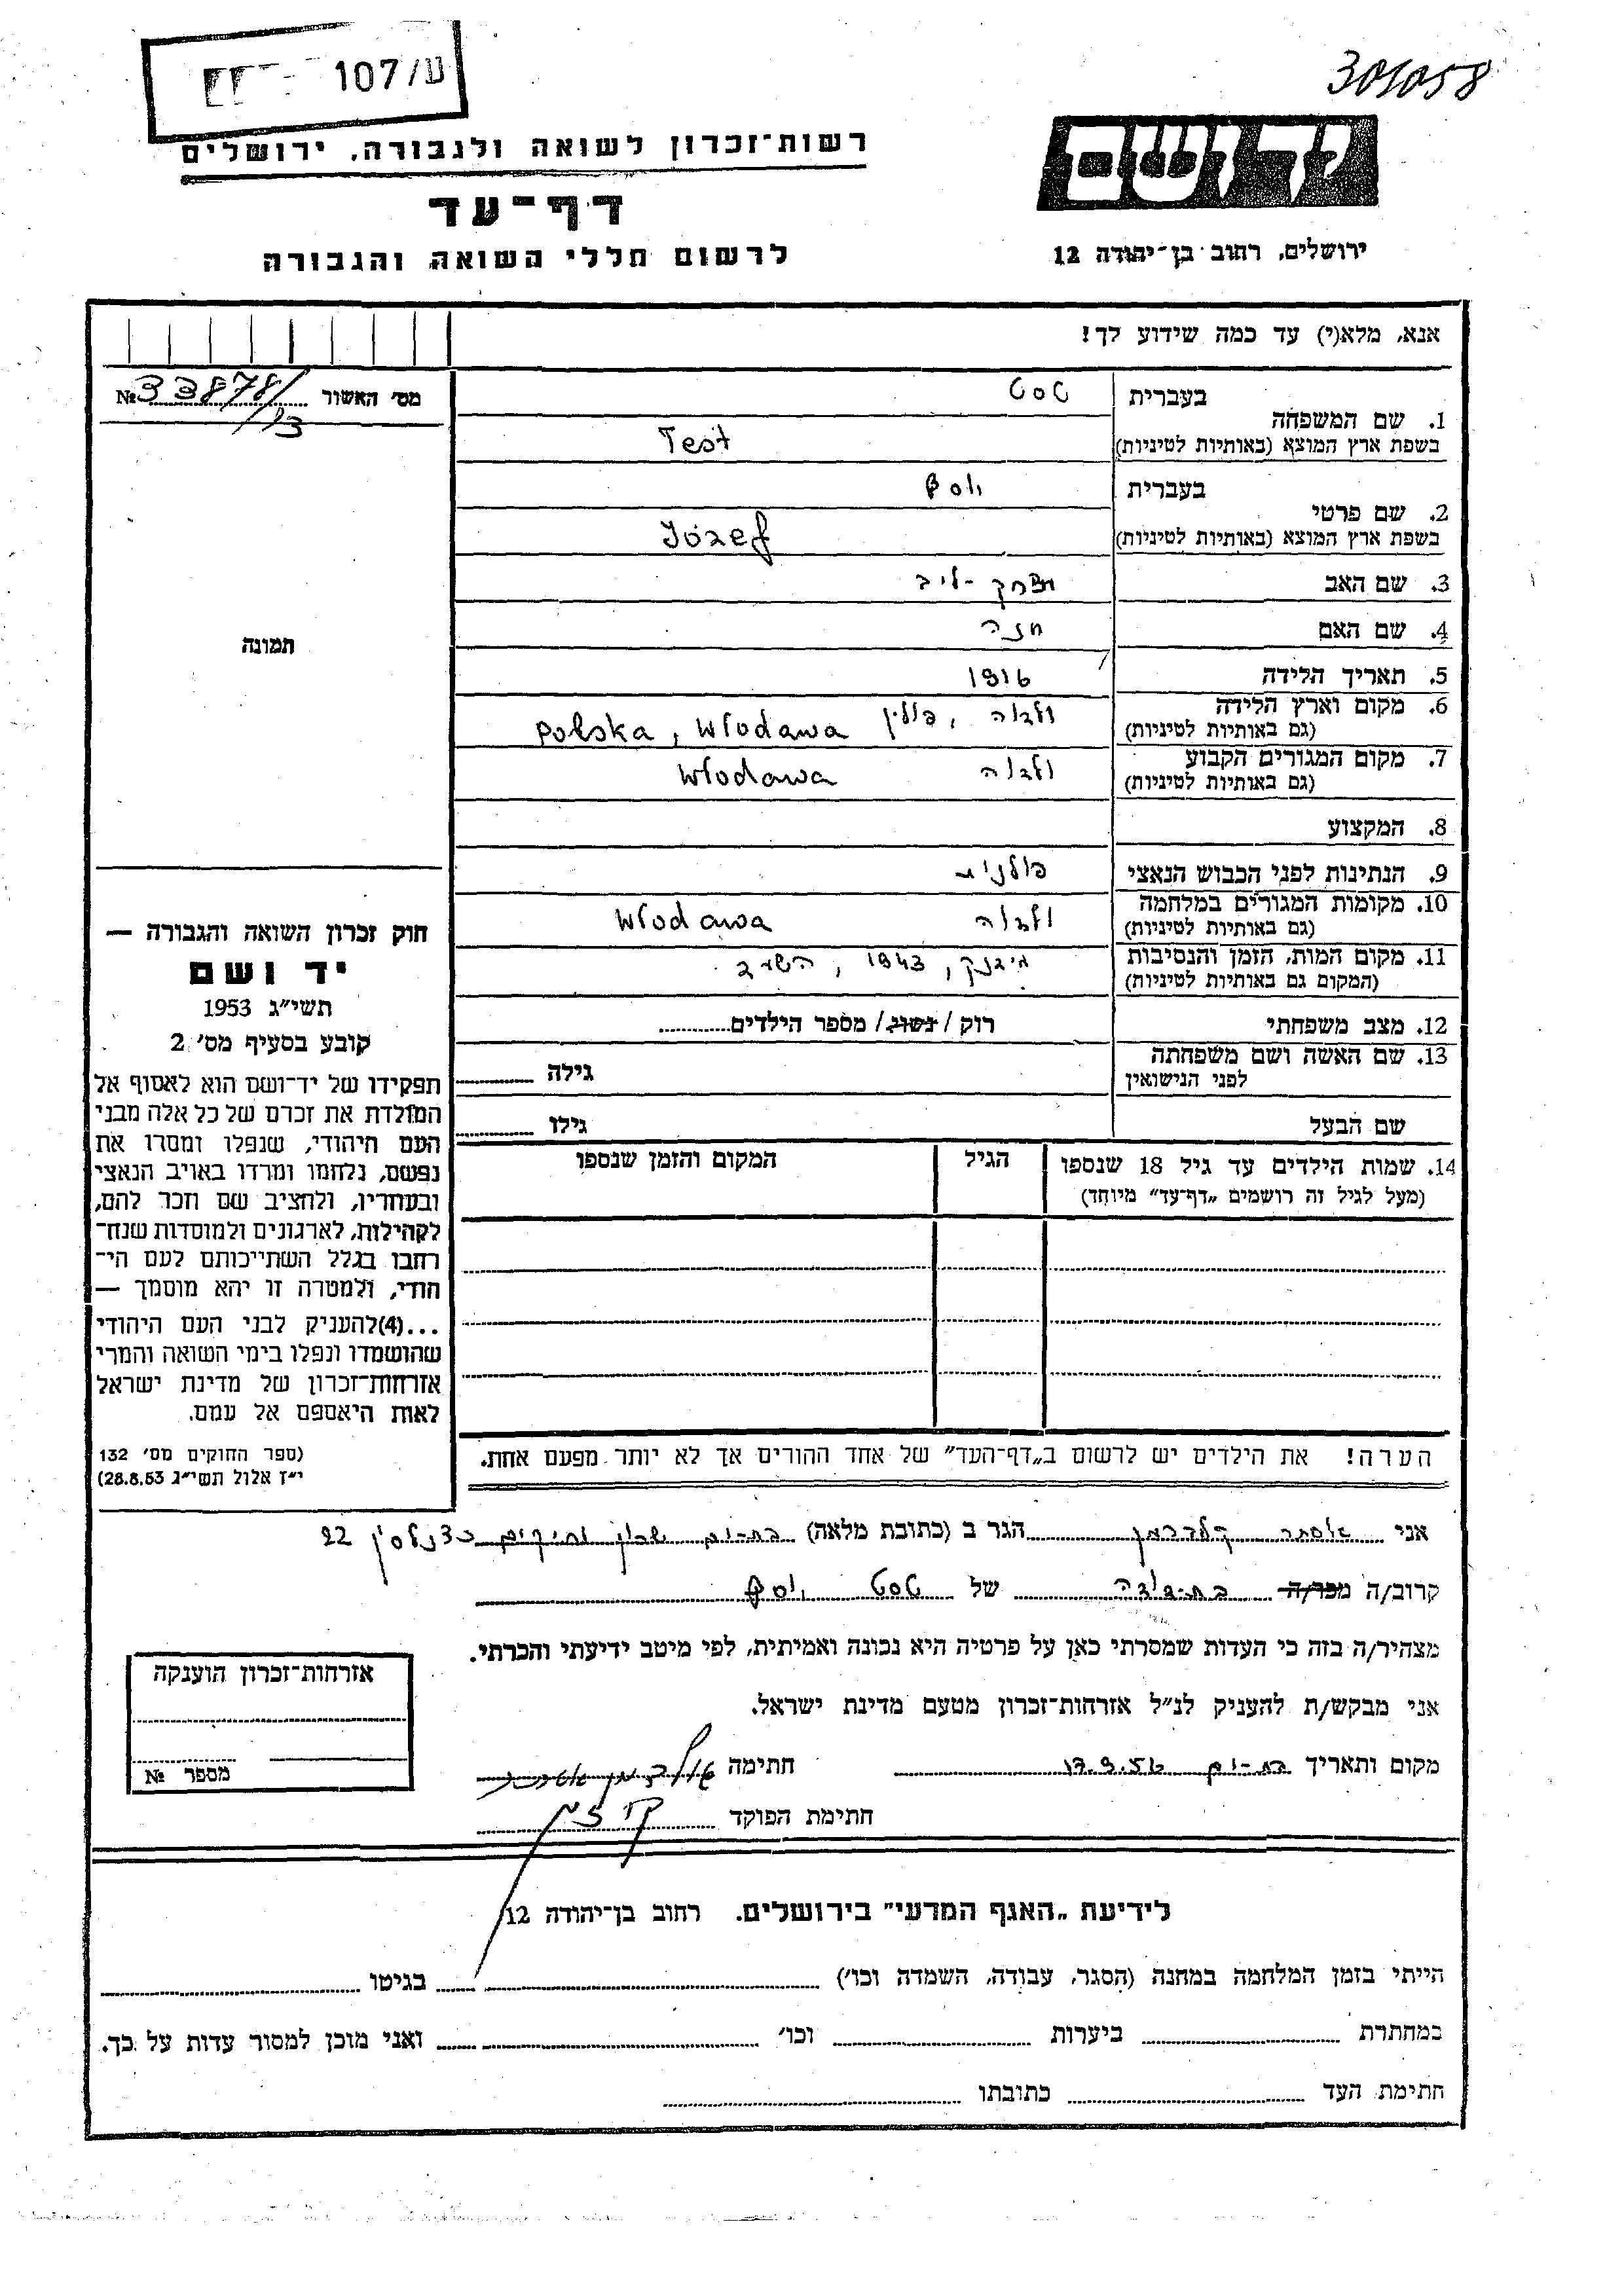 ע/107
301058
רשות־זכרון לשואה ולגבורה, ירושלים
דף־עד
לרשום חללי השואה והגבורה
יד ושם
ירושלים, רחוב בן־יהודה 12
אנא, מלא(י) עד כמה שידוע לך!
מס׳ האשור № 33878/93
1. שם המשפחה בעברית טסט
בשפת ארץ המוצא (באותיות לטיניות) Test
2. שם פרטי בעברית יוסף
בשפת ארץ המוצא (באותיות לטיניות) Józef
3. שם האב יצחק - ליב
4. שם האם חנה
5. תאריך הלידה 1916
6. מקום וארץ הלידה ולדוה, פולין Polska, Włodawa
(גם באותיות לטיניות)
7. מקום המגורים הקבוע ולדוה Włodawa
(גם באותיות לטיניות)
8. המקצוע
9. הנתינות לפני הכבוש הנאצי פולנית
10. מקומות המגורים במלחמה ולדוה Włodawa
(גם באותיות לטיניות)
11. מקום המות, הזמן והנסיבות 1943,
(המקום גם באותיות לטיניות)
12. מצב משפחתי רוק / נשוי / מספר הילדים
13. שם האשה ושם משפחתה גילה
לפני הנישואין
שם הבעל גילו
14. שמות הילדים עד גיל 18 שנספו הגיל המקום והזמן שנספו
(מעל לגיל זה רושמים „דף־עד” מיוחד)
תמונה
חוק זכרון השואה והגבורה —
יד ושם
תשי״ג 1953
קובע בסעיף מס׳ 2
תפקידו של יד־ושם הוא לאסוף אל
המולדת את זכרם של כל אלה מבני
העם היהודי, שנפלו ומסרו את
נפשם, נלחמו ומרדו באויב הנאצי
ובעוזריו, ולהציב שם וזכר להם,
לקהילות, לארגונים ולמוסדות שנח־
רחבו בגלל השתייכותם לעם הי־
הודי, ולמטרה זו יהא מוסמך —
...(4)להעניק לבני העם היהודי
שהושמדו ונפלו בימי השואה והמרי
אזרחות־זכרון של מדינת ישראל
לאות היאספם אל עמם.
(ספר החוקים מס׳ 132
י״ז אלול תשי״ג 28.8.53)
הערה! את הילדים יש לרשום ב„דף־העד” של אחד ההורים אך לא יותר מפעם אחת.
אני אסתר קלדרמן הגר ב (כתובת מלאה) בת-ים שכון ותיקים 22
קרוב/ה מכר/ה בת-דודה של טסט יוסף
מצהיר/ה בזה כי העדות שמסרתי כאן על פרטיה היא נכונה ואמיתית, לפי מיטב ידיעתי והכרתי.
אני מבקש/ת להעניק לנ״ל אזרחות־זכרון מטעם מדינת ישראל.
מקום ותאריך בת-ים 17.9.56 חתימה
חתימת הפוקד
אזרחות־זכרון הוענקה
מספר №
לידיעת „האגף המדעי” בירושלים. רחוב בן־יהודה 12
הייתי בזמן המלחמה במחנה (הסגר, עבודה, השמדה וכו׳) בגיטו
במחתרת ביערות וכו׳ ואני מוכן למסור עדות על כך.
חתימת העד כתובתו